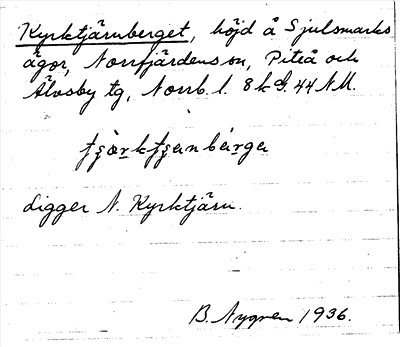 Kyrktjärnberget, höjd å Sjulsmarks
ägor, Norrfjärdens sn, Piteå och
Älvsby tg, Norrb. l. 8 k d. 44 NM.
Ligger N. Kyrktjärn.
B. Nygren 1936.